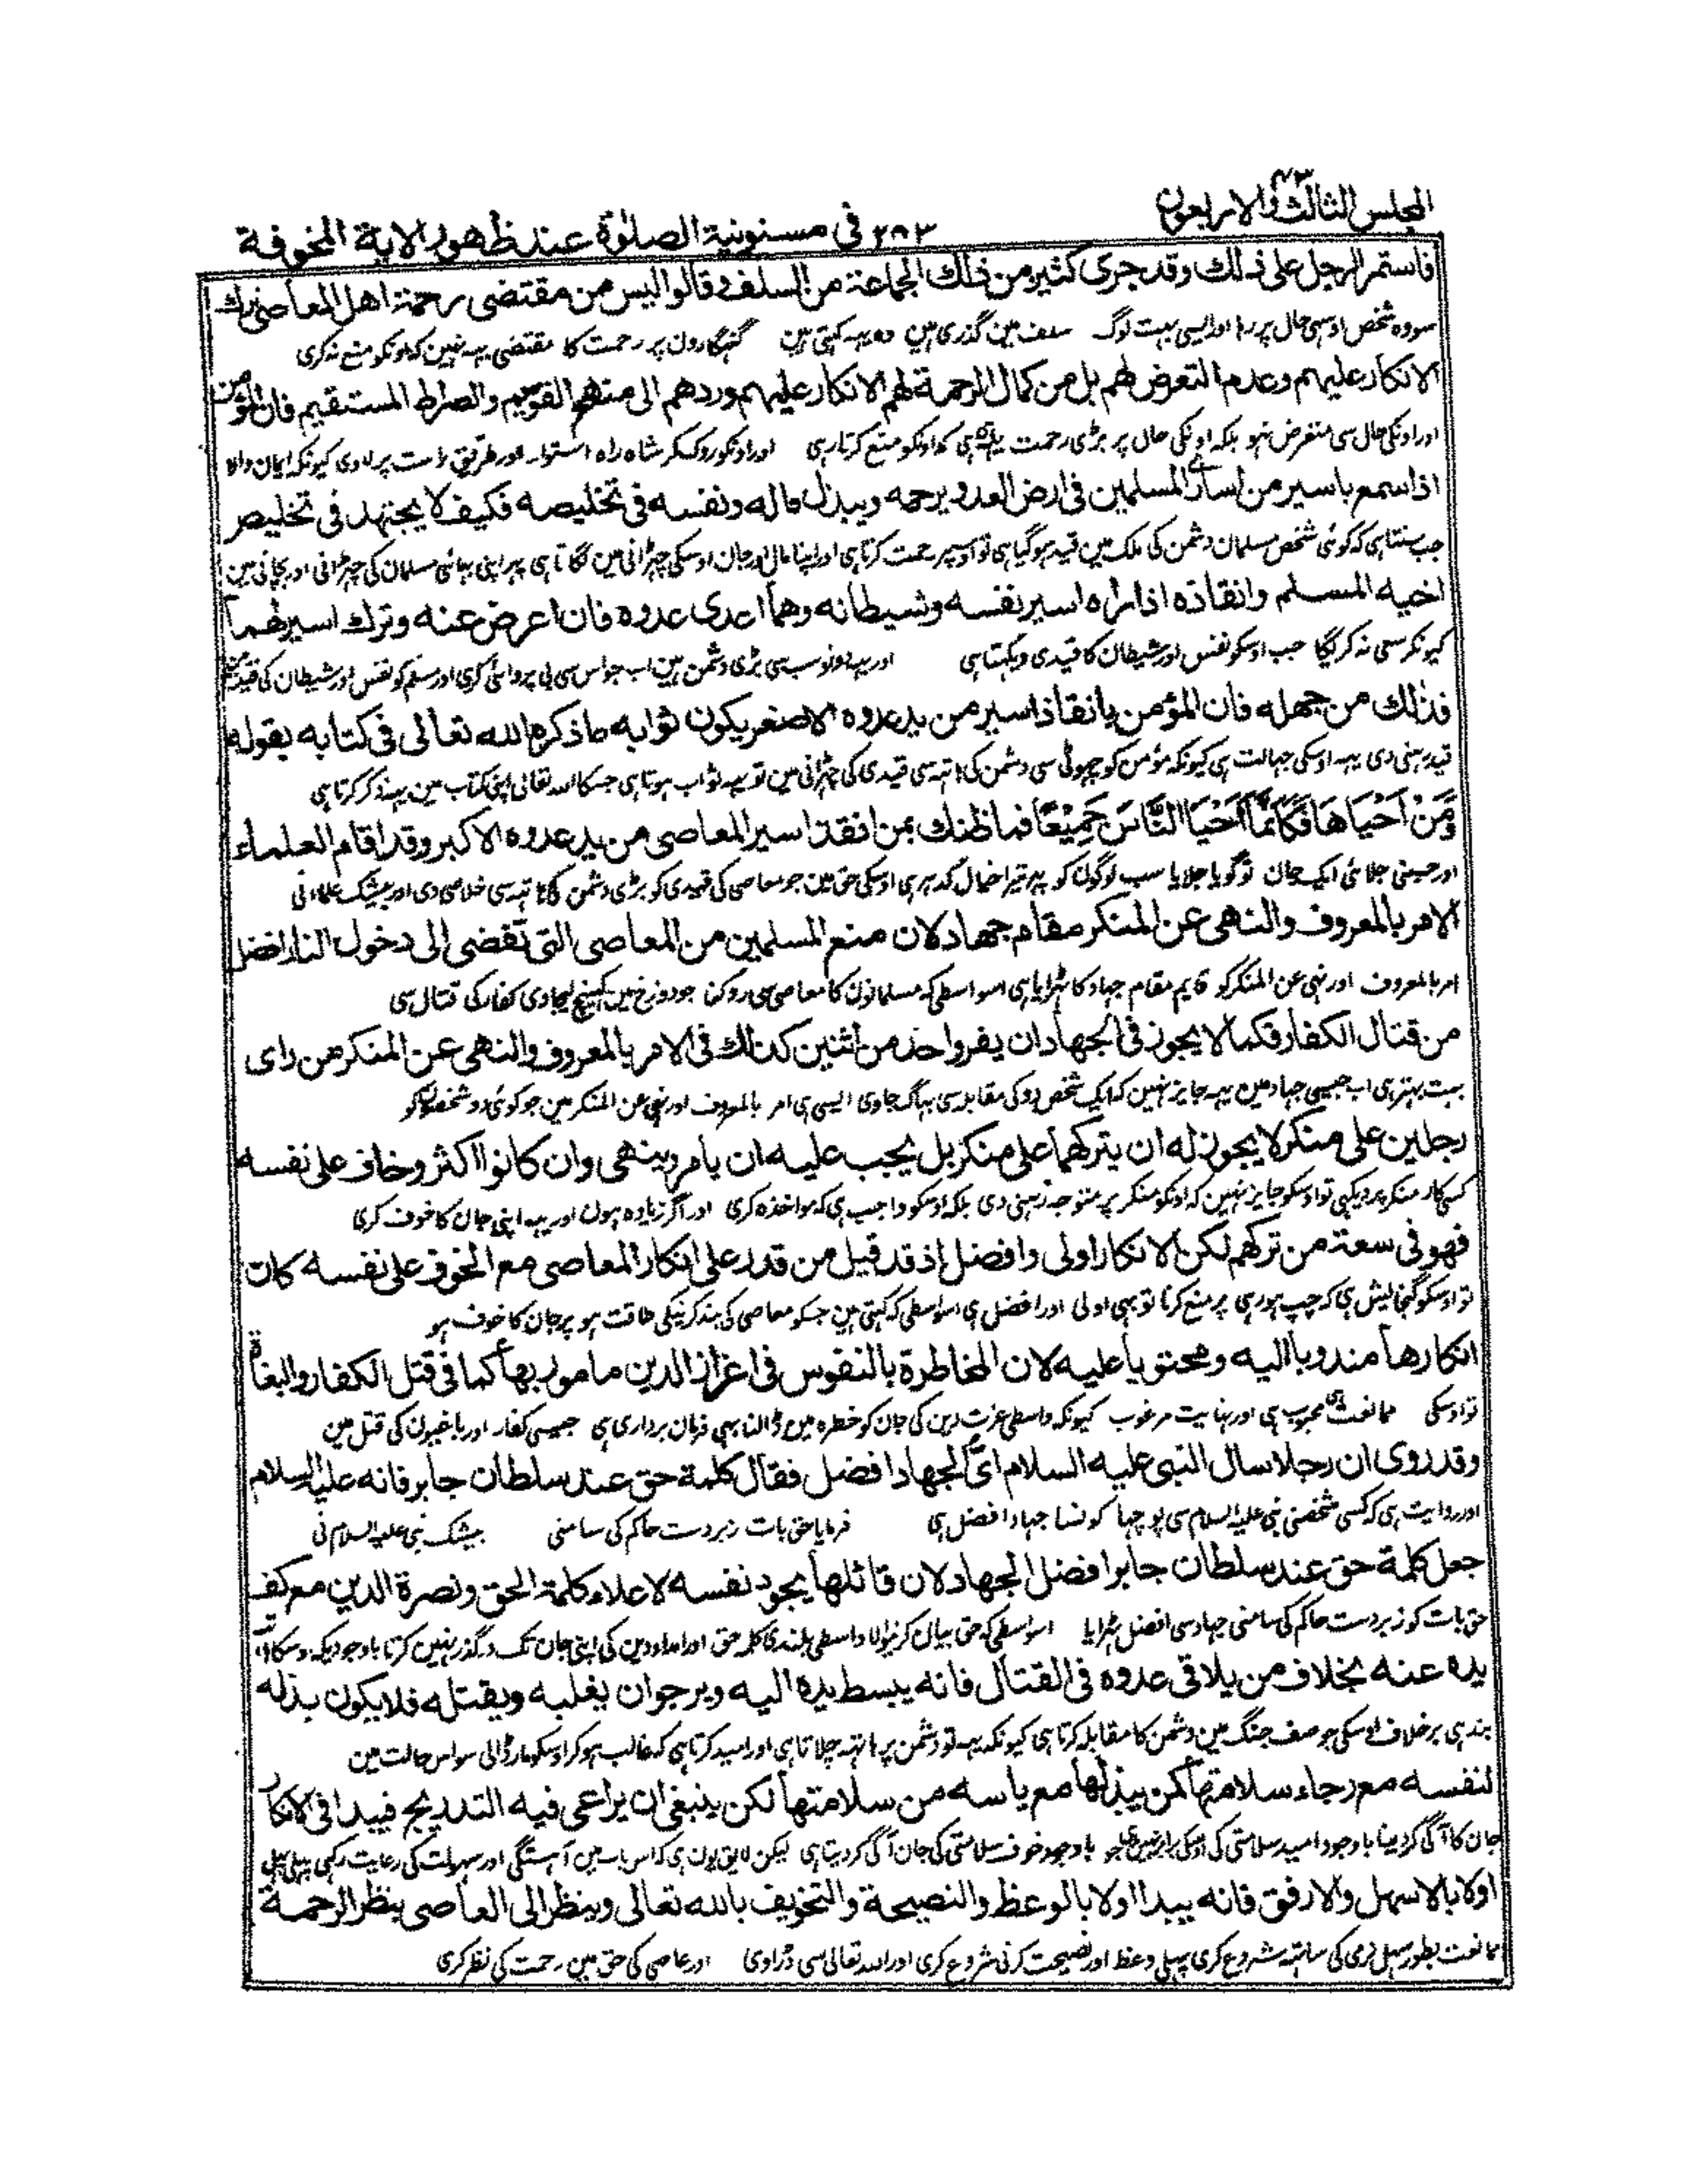 المجلس الثالث والاربعون ٤٣
٢٨٣ في مسنونية الصلوة عند ظهور الاية المخوفة
فاستمر الرجل على ذلك وقد جرى كثير من ذلك لجماعة من السلف وقالوا ليس من مقتضى رحمة اهل المعاصي ترك
سو وه شخص اوسی حال پر رہا اور ایسی بہت لوگ سلف مین گذری ہین وہ یہہ کہتی ہین گنہگارون پر رحمت کا مقتضی یہہ نہین کہ اونکو منع نہ کری
الانكار عليهم وعدم التعرض لهم بل من كمال الرحمة لهم الانكار عليهم وردهم الى منهجهم القويم والصراط المستقيم فان المؤمن
اور اونکی حال سی متعرض نہو بلکہ اونکی حال پر بڑی رحمت یہہ ہی کہ اونکو منع کرتا رہی اور اونکو روک کر شاہ راہ استوار اور طریق راست پر لاوی کیونکہ ایمان والا
اذا سمع باسير من اسارى المسلمين في ارض العدو يرحمه ويبذل ماله ونفسه في تخليصه فكيف لا يجتهد في تخليص
جب سنتا ہی کہ کوئی شخص مسلمان دشمن کی ملک مین قید ہو گیا ہی تو اوسپر رحمت کرتا ہی اور اپنا مال اور جان اوسکی چہڑانی مین لگاتا ہی پہر اپنی بہائی مسلمان کی چہڑانی اور بچانی مین
اخيه المسلم وانقاذه اذا راه اسير نفسه وشيطانه وهما اعدى عدوه فان اعرض عنه وترك اسيرهما
کیونکر سعی نہ کریگا جب اوسکو نفس اور شیطان کا قیدی دیکہتا ہی اور یہہ دونو سب سی بڑی دشمن ہین اب جو اس سی بی پروائی کری اور مسلم کو نفس اور شیطان کی قید مین
فذلك من جهله فان المؤمن بانقاذ اسير من يد عدوه الاصغر يكون ثوابه ما ذكره الله تعالى في كتابه بقوله
قید رہنی دی یہہ اوسکی جہالت ہی کیونکہ مؤمن کو چہوٹی سی دشمن کی ہاتہہ سی قیدی کی چہڑانی مین تو یہہ ثواب ہوتا ہی جسکا اللہ تعالی اپنی کتاب مین یہہ ذکر کرتا ہی
وَمَنْ اَحْيَاهَا فَكَاَنَّمَا اَحْيَا النَّاسَ جَمِيْعًا فما ظنك بمن انقذ اسير المعاصي من يد عدوه الاكبر وقد اقام العلماء
اور جسنی جلائی ایک جان تو گویا جلایا سب لوگون کو پہر تیرا خیال کدہر ہی اوسکی حق مین جو معاصی کی قیدی کو بڑی دشمن کی ہاتہہ سی خلاصی دی اور بیشک علما نی
الامر بالمعروف والنهى عن المنكر مقام جهاد لان منع المسلمين من المعاصي التي تفضي الى دخول النار افضل
امر بالمعروف اور نہی عن المنکر کو قایم مقام جہاد کا ٹہرایا ہی اسواسطی کہ مسلمانون کا معاصی سی روکنا جو دوزخ مین کہینچ لیجاوی کفار کی قتال سی
من قتال الكفار فكما لا يجوز في الجهاد ان يفر واحد من اثنين كذلك في الامر بالمعروف والنهى عن المنكر من راى
بہت بہتر ہی اب جیسی جہاد مین یہہ جایز نہین کہ ایک شخص دو کی مقابلہ سی بہاگ جاوی ایسی ہی امر بالمعروف اور نہی عن المنکر مین جو کوئی دو شخصون کو
رجلين على منكر لا يجوز له ان يتركهما على منكر بل يجب عليه ان يامر وينهى وان كانوا اكثر وخاف على نفسه
کسی کار منکر پر دیکہی تو اوسکو جایز نہین کہ اونکو منکر پر متوجہ رہنی دی بلکہ اوسکو واجب ہی کہ مواخذہ کری اور اگر زیادہ ہون اور یہہ اپنی جان کا خوف کری
فهو في سعة من تركهم لكن الانكار اولى وافضل اذ قد قيل من قدر على انكار المعاصي مع الخوف على نفسه كان
تو اوسکو گنجایش ہی کہ چپ ہو رہی پر منع کرنا تو بہی اولی اور افضل ہی اسواسطی کہ کہتی ہین جسکو معاصی کی بند کرنیکی طاقت ہو پر جان کا خوف ہو
انكارها مندوبا اليه ومحثوبا عليه لان المخاطرة بالنفوس في اعزاز الدين مامور بها كما في قتل الكفار والبغاة
تو اوسکی ممانعت محبوب ہی اور نہایت مرغوب کیونکہ واسطی عزت دین کی جان کو خطرہ مین ڈالنا بہی فرمان برداری ہی جیسی کفار اور باغیون کی قتل مین
وقد روى ان رجلا سال النبي عليه السلام اىّ الجهاد افضل فقال كلمة حق عند سلطان جابر فانه عليه السلام
اور روایت ہی کہ کسی شخص نی نبی علیہ السلام سی پوچہا کونسا جہاد افضل ہی فرمایا حق بات زبردست حاکم کی سامنی بیشک نبی علیہ السلام نی
جعل كلمة حق عند سلطان جابر افضل الجهاد لان قائلها يجود نفسه لاعلاء كلمة الحق ونصرة الدين مع كف
حق بات کو زبردست حاکم کی سامنی جہاد سی افضل ٹہرایا اسواسطی کہ حق بیان کرنیوالا واسطی بلندی کلمہ حق اور امداد دین کی اپنی جان تک درگذر نہین کرتا باوجودیکہ اوسکا ہاتہہ
يده عنه بخلاف من يلاقي عدوه في القتال فانه يبسط يده اليه ويرجو ان يغلبه ويقتله فلا يكون بذله
بند ہی برخلاف اوسکی جو صف جنگ مین دشمن کا مقابلہ کرتا ہی کیونکہ یہہ تو دشمن پر ہاتہہ چلاتا ہی اور امید کرتا ہی کہ غالب ہو کر اوسکو مار ڈالی سو اس حالت مین
لنفسه مع رجاء سلامتها كمن يبذلها مع ياسه من سلامتها لكن ينبغي ان يراعى فيه التدريج فيبدا في الانكار
جان کا آگی کر دینا باوجود امید سلامتی کی اوسکی برابر نہین جو باوجود خوف سلامتی کی جان آگی کر دیتا ہی لیکن لایق یون ہی کہ اس باب مین آہستگی اور سہولت کی رعایت رکہی پہلی پہلی
اولا بالاسهل والارفق فانه يبدا اولا بالوعظ والنصيحة والتخويف بالله تعالى وينظر الى العاصى بنظر الرحمة
ممانعت بطور سہل نرمی کی ساتہہ شروع کری پہلی وعظ اور نصیحت کرنی شروع کری اور اللہ تعالی سی ڈراوی اور عاصی کی حق مین رحمت کی نظر کری